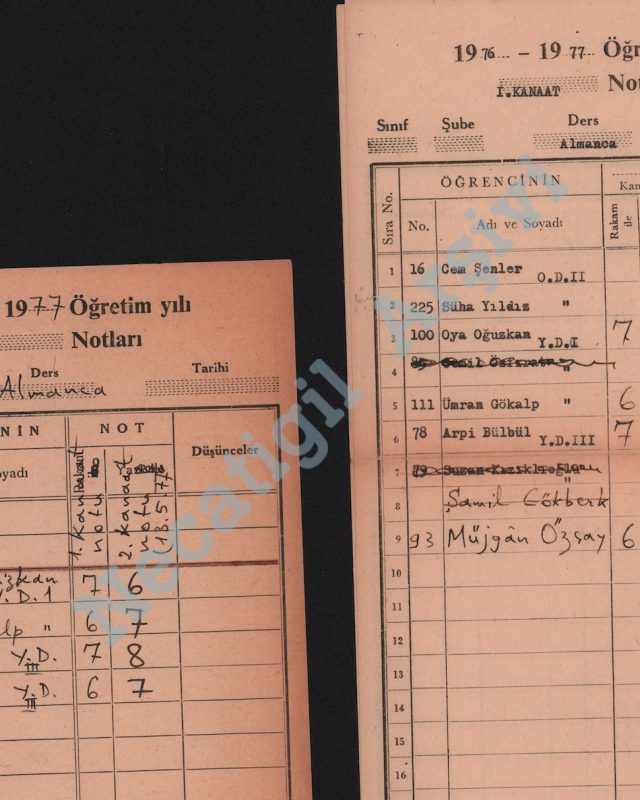 1976 - 1977 Öğr
I.KANAAT Not
Sınıf Şube Ders
Almanca
Sıra No. ÖĞRENCİNİN Kan
No. Adı ve Soyadı Rakam ile
1 16 Cem Şenler O.D.II
2 225 Süha Yıldız "
3 100 Oya Oğuzkan Y.D.I 7
4 "
5 111 Ümran Gökalp " 6
6 78 Arpi Bülbül Y.D.III 7
7 79 Suzan "
8 Şamil Gökberk
9 93 Müjgân Özsay 6
10
11
12
13
14
15
16
1977 Öğretim yılı
Notları
Ders Tarihi
Almanca
NIN NOT Düşünceler
oyadı 1. Kanaat notu 2. Kanaat notu (13.5.77)
uzkan Y.D.1 7 6
alp " 6 7
Y.D. III 7 8
Y.D. III 6 7
Necatigil Arşivi